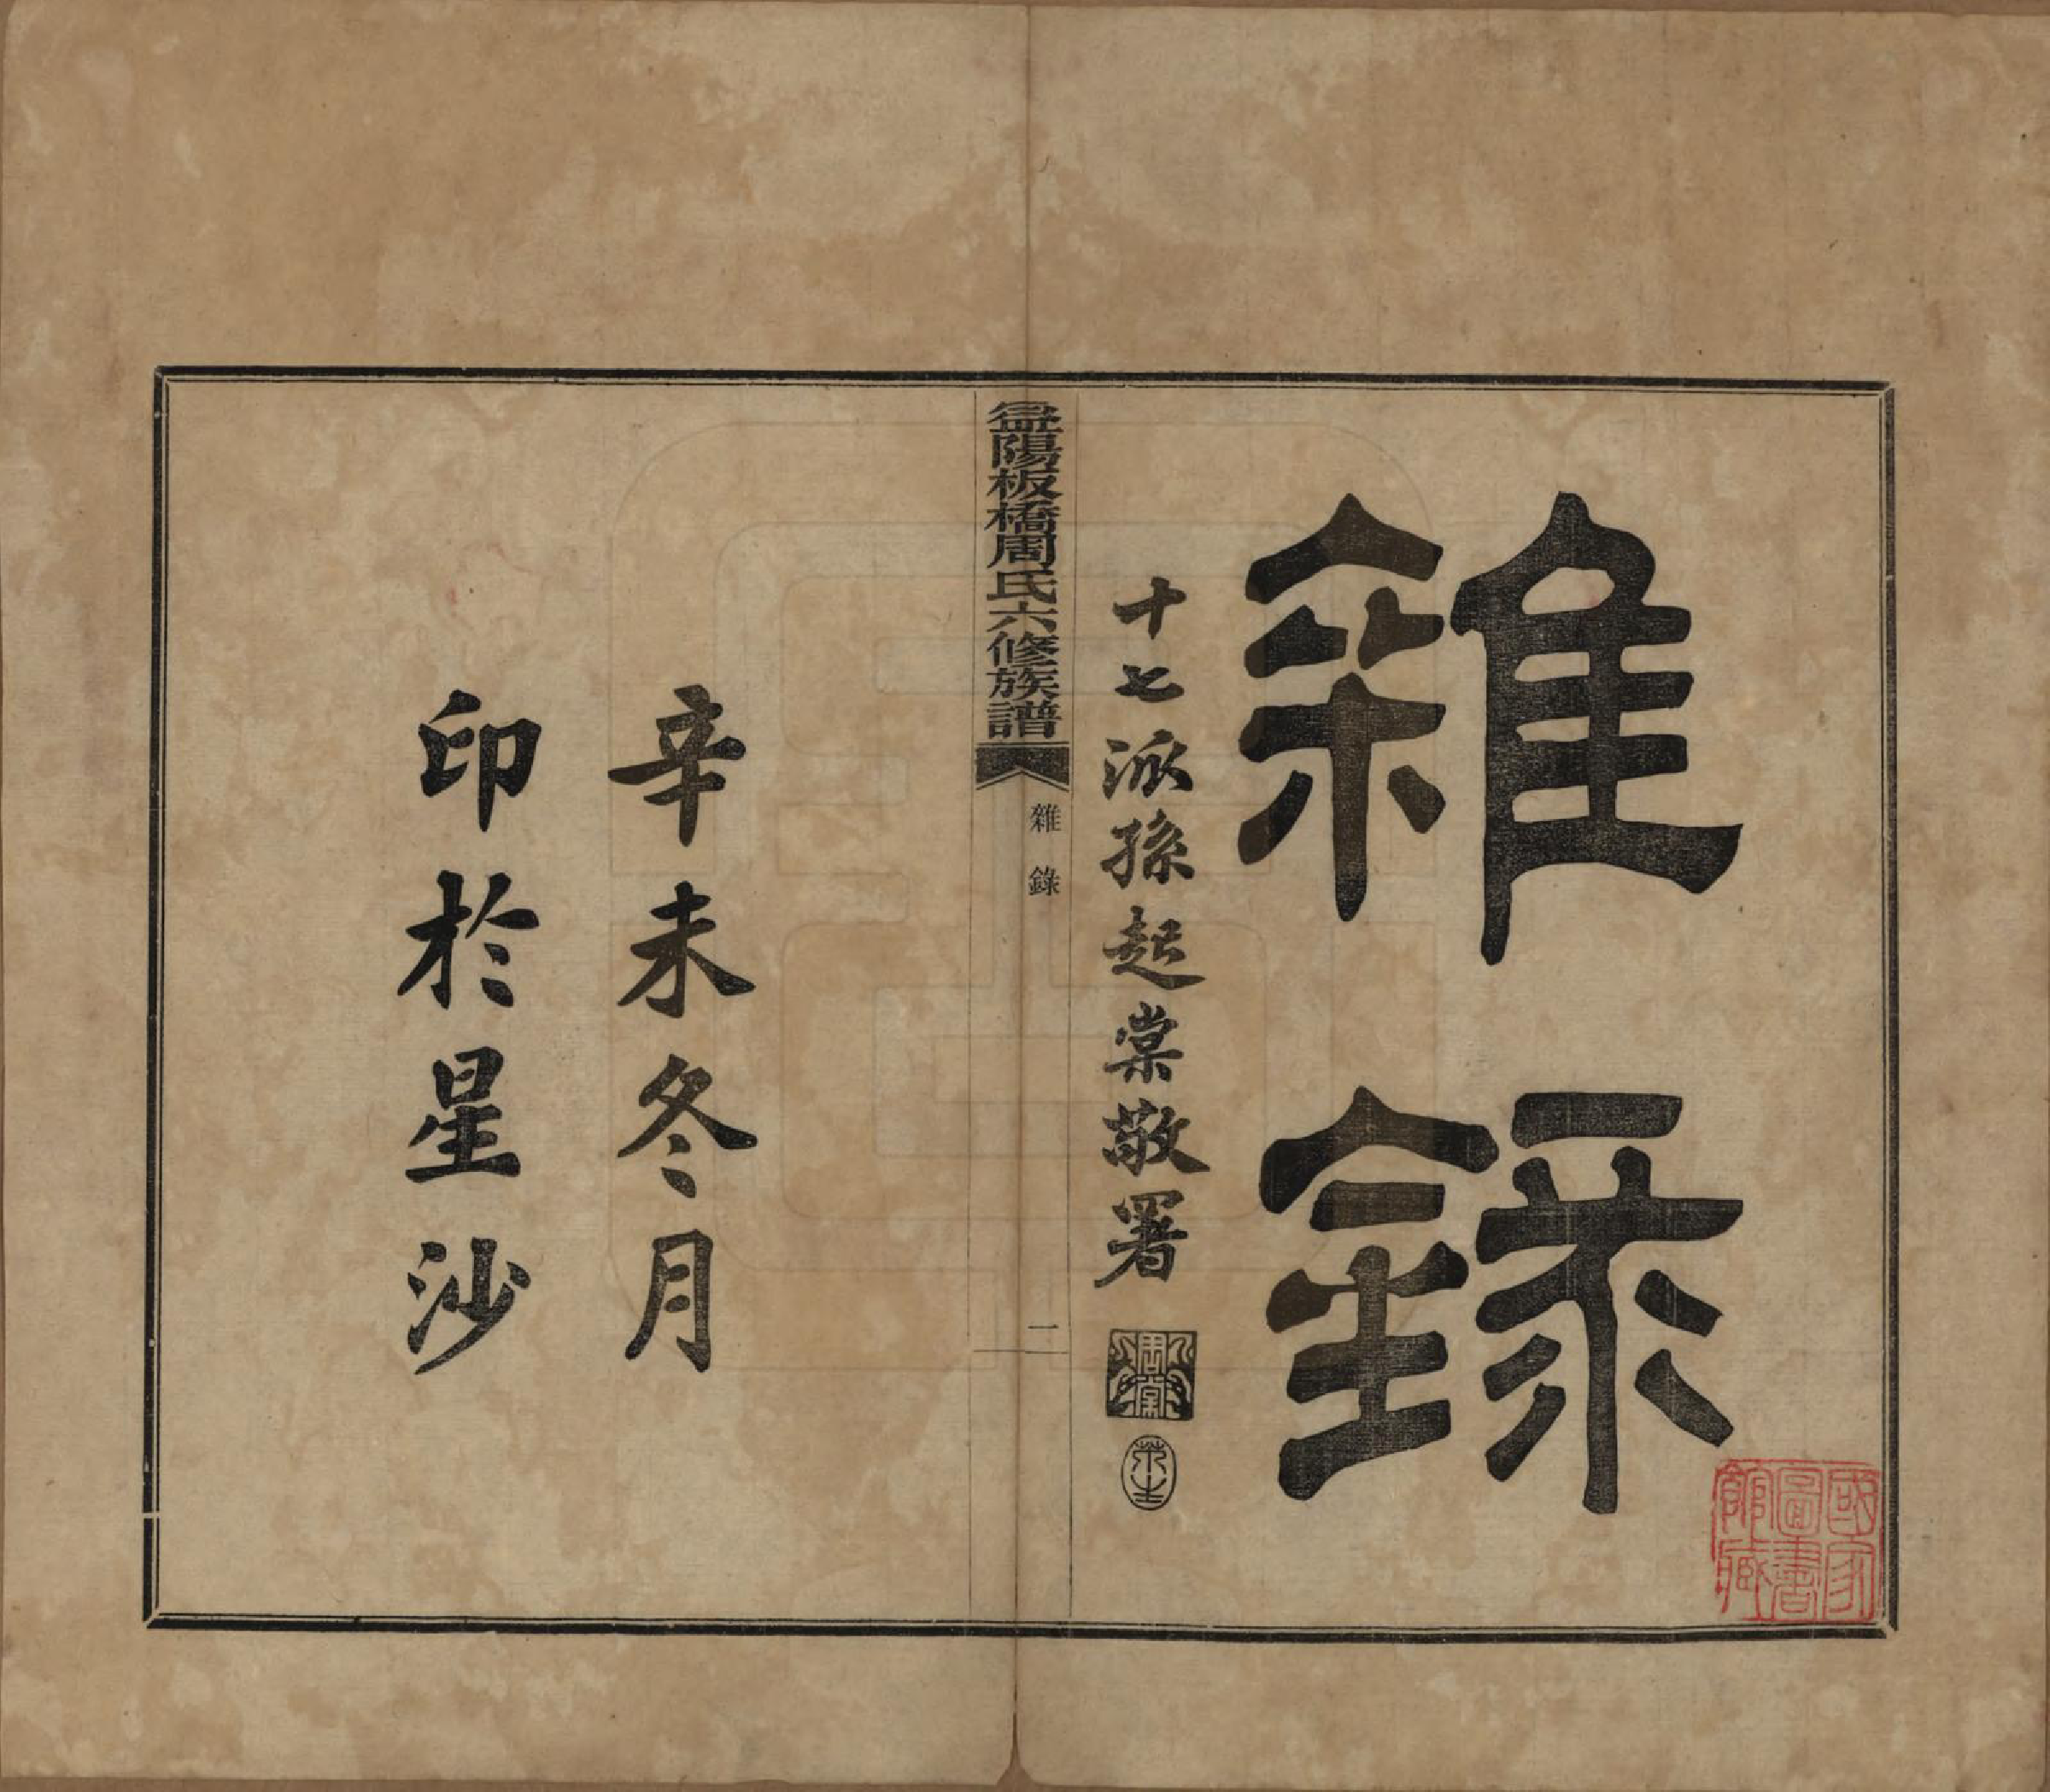 雜錄
十七派孫起棠敬署
國家
圖書
館藏
益陽板橋周氏六修族譜
雜錄
一
辛未冬月
印於星沙